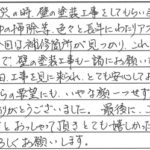 災の時、壁の塗装工事をしてもらい
の掃除等、色々と長年にわたりア
回は補修箇所が見つかり、これ
で、壁の塗装工事も一諸にお願い
工事を見に来られ、とても安心してお
らの要望にも、いやな顔一つせず
りがとうございました。最後に、こ
とおっしゃて頂きとても嬉しかった
ろしくお願いします。